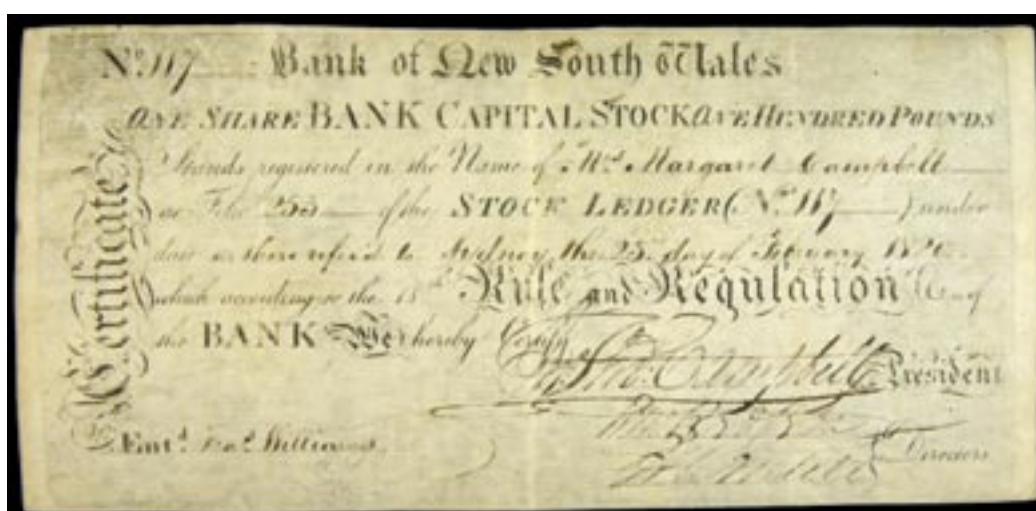 No. 117 Bank of New South Wales
ONE SHARE BANK CAPITAL STOCK ONE HUNDRED POUNDS
Stands registered in the Name of Mrs. Margaret Campbell
Folio 253 of the STOCK LEDGER (No. 117 ) under
date as there refer'd to Sydney the 25 day of February
which according to the 18th Rule and Regulation of
the BANK We hereby Certify
Campbell President
Directors
Ent.d Williams
Certificate